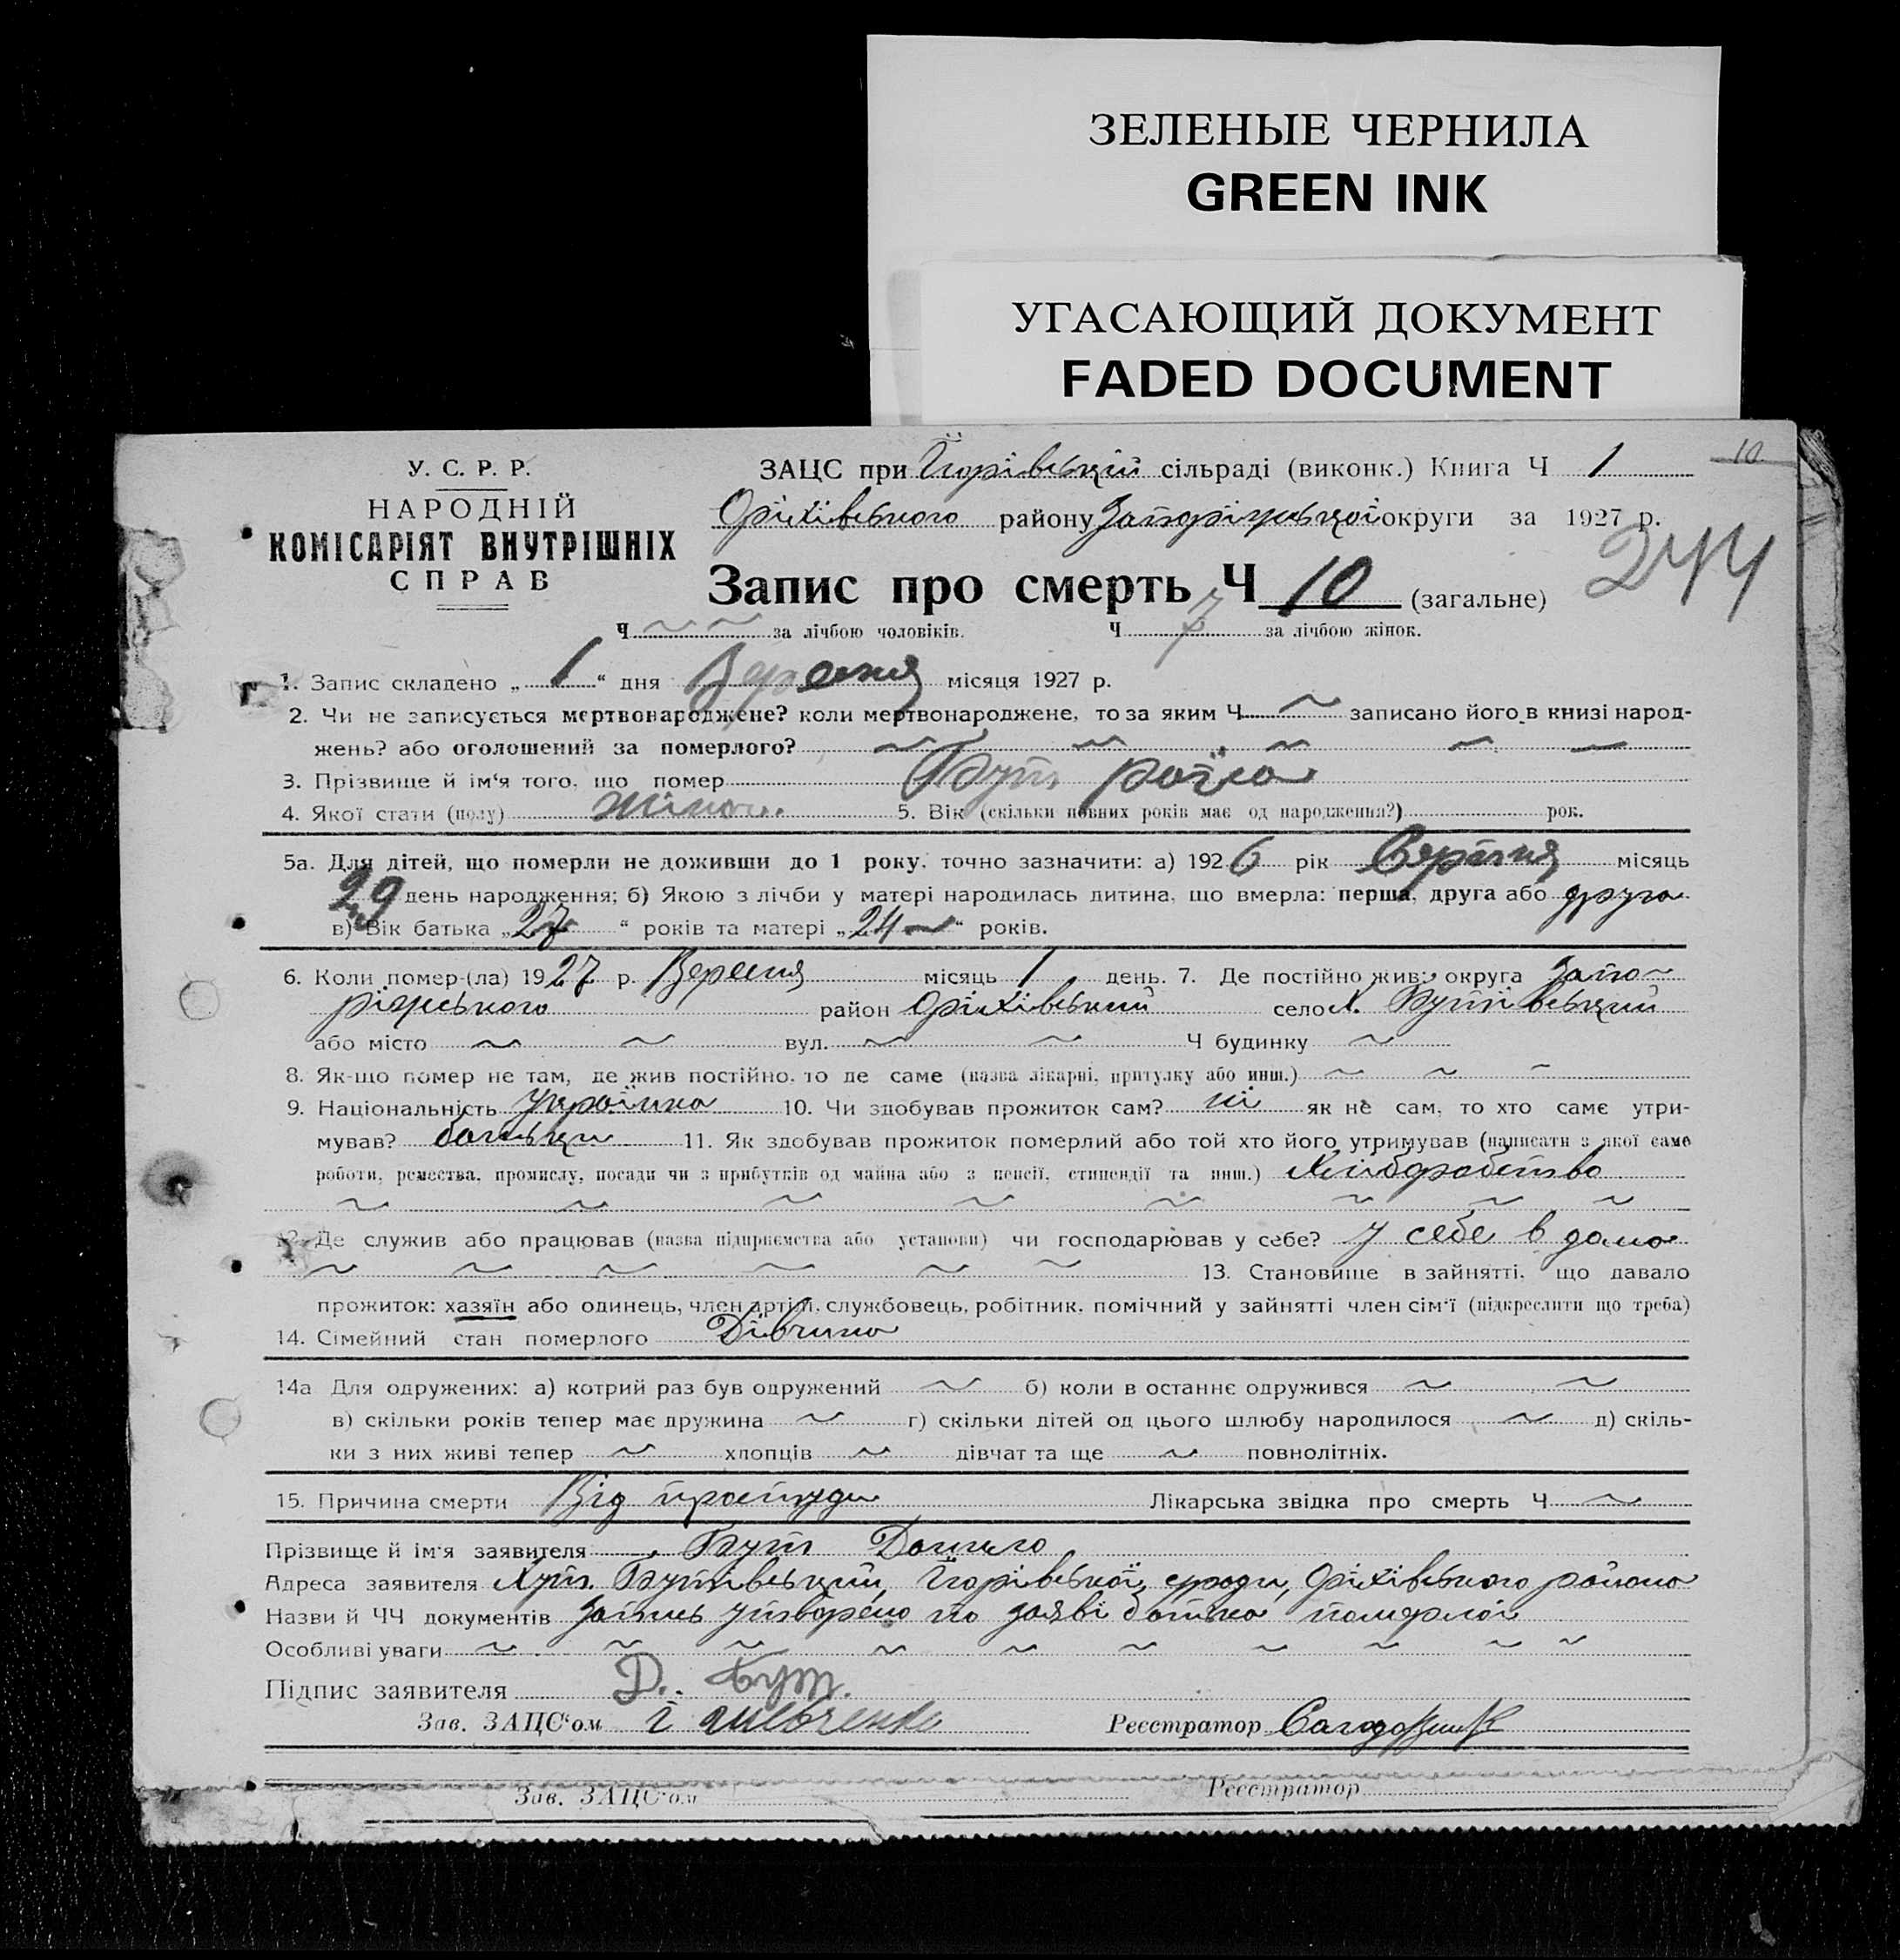 ЗЕЛЕНЫЕ ЧЕРНИЛА
GREEN INK
УГАСАЮЩИЙ ДОКУМЕНТ
FADED DOCUMENT
У. С. Р. Р.
НАРОДНІЙ
КОМІСАРІЯТ ВНУТРІШНІХ
СПРАВ
ЗАЦС при сільраді (виконк.) Книга Ч 1
10
Оріхівського району Запоріжської округи за 1927 р.
244
Запис про смерть Ч 10 (загальне)
Ч ~ ~ за лічбою чоловіків. Ч 7 за лічбою жінок.
1. Запис складено „ 1 “ дня Вересня місяця 1927 р.
2. Чи не записується мертвонароджене? коли мертвонароджене, то за яким Ч ~ записано його в книзі народ-
жень? або оголошений за померлого? ~ ~ ~ ~ ~
3. Прізвище й ім‘я того, що помер Бут Раїса
4. Якої стати (полу) жіноч. 5. Вік (скільки повних років має од народження?) рок.
5а. Для дітей, що померли не доживши до 1 року, точно зазначити: а) 1926 рік місяць
29 день народження; б) Якою з лічби у матері народилась дитина, що вмерла: перша, друга або друга
в) Вік батька „ 27 “ років та матері „ 24 ~ “ років.
6. Коли помер-(ла) 1927 р. Вересня місяць 1 день. 7. Де постійно жив: округа Запо-
ріжського район Оріхівський село Х. Бутівський
або місто ~ ~ вул. ~ ~ Ч будинку ~
8. Як-що помер не там, де жив постійно, то де саме (назва лікарні, притулку або инш.) ~ ~ ~
9. Національність Українка 10. Чи здобував прожиток сам? ні як не сам, то хто саме утри-
мував? батьки 11. Як здобував прожиток померлий або той хто його утримував (написати з якої саме
роботи, ремества, промислу, посади чи з прибутків од майна або з пенсії, стипендії та инш.) Хліборобство
~ ~ ~ ~ ~ ~ ~ ~
12. Де служив або працював (назва підприємства або установи) чи господарював у себе? у себе в дома
~ ~ ~ ~ ~ ~ 13. Становище в зайнятті, що давало
прожиток: хазяїн або одинець, член артіл., службовець, робітник, помічний у зайнятті член сім‘ї (підкреслити що треба)
14. Сімейний стан померлого Дівчина
14а Для одружених: а) котрий раз був одружений ~ б) коли в останнє одружився ~ ~
в) скільки років тепер має дружина ~ г) скільки дітей од цього шлюбу народилося ~ д) скіль-
ки з них живі тепер ~ хлопців ~ дівчат та ще ~ повнолітніх.
15. Причина смерти Від простуди Лікарська звідка про смерть Ч ~
Прізвище й ім‘я заявителя Бут Данило
Адреса заявителя Хут. Бутівський, с/ради, Оріхівського района
Назви й ЧЧ документів Запись утворено по заяві батька померлої
Особливі уваги ~ ~ ~ ~ ~ ~ ~ ~ ~ ~
Підпис заявителя Д. Бут.
Зав. ЗАЦС‘ом Реєстратор
Зав. ЗАЦС‘ом Реєстратор